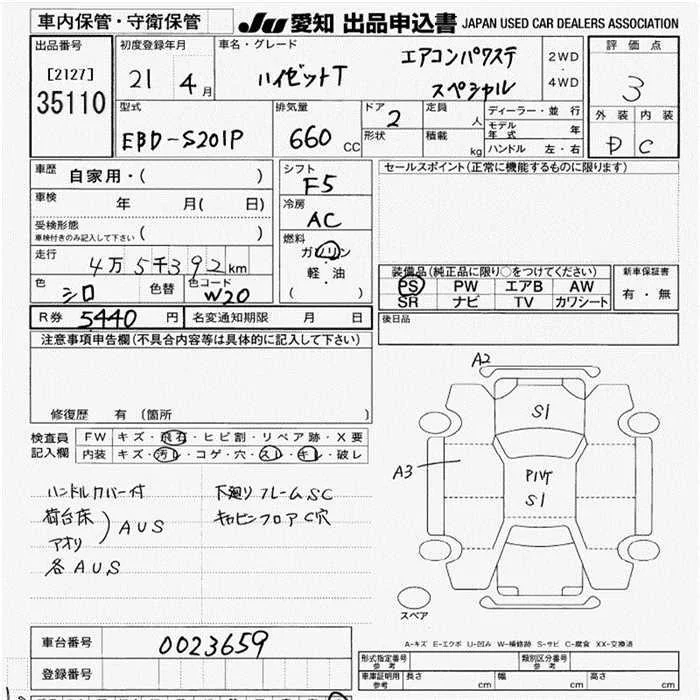 車内保管・守衛保管
JU 愛知 出品申込書 JAPAN USED CAR DEALERS ASSOCIATION
出品番号
[2127]
35110
初度登録年月
21年4月
車名・グレード
ハイゼットT
エアコンパワステ
スペシャル
2WD
・
4WD
評価点
3
外装 内装
D C
型式
EBD-S201P
排気量
660 cc
ドア
2
形状
定員
人
積載
kg
ディーラー・並行
モデル年式 年
ハンドル 左・右
車歴
自家用・( )
車検
年 月( 日)
受検形態
車検付きのみ記入して下さい ( )
走行
4万5千392km
色
シロ
色替
色コード
W20
シフト
F5
冷房
AC
燃料
ガソリン
・
軽・油
( )
セールスポイント(正常に機能するものに限ります)
装備品(純正品に限り○をつけてください)
PS PW エアB AW
SR ナビ TV カワシート
新車保証書
有・無
R券 5440 円 名変通知期限 月 日
後日品
注意事項申告欄(不具合内容等は具体的に記入して下さい)
修復歴 有 (箇所 )
検査員
記入欄
FW キズ・飛石・ヒビ割・リペア跡・X要
内装 キズ・汚レ・コゲ・穴・スレ・キレ・破レ
ハンドルカバー付
荷台床
アオリ
) AUS
各AUS
下廻りフレームSC
キャビンフロアC穴
A2
S1
A3
PIVT
S1
スペア
A-キズ E-エクボ U-凹み W-補修跡 S-サビ C-腐食 XX-交換済
車台番号 0023659
登録番号
形式指定番号
参考
類別区分番号
参考
車庫証明用
参考
長さ cm 幅 cm 高さ cm